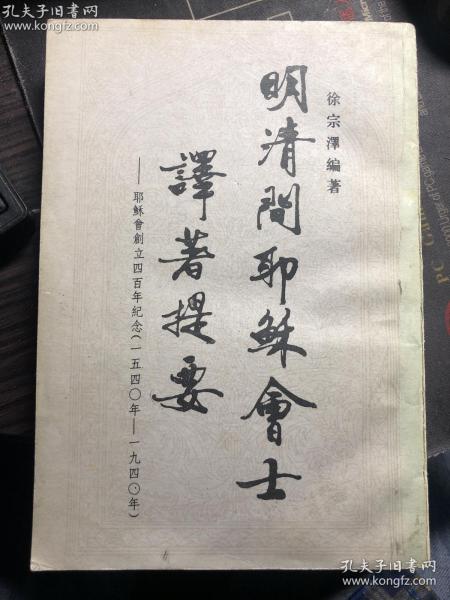 孔夫子旧书网
www.kongfz.com
孔夫子旧书网
www.kongfz.com
徐宗澤編著
明清間耶穌會士
譯著提要
——耶穌會創立四百年紀念(一五四〇年——一九四〇年)
孔夫子旧书网
www.kongfz.com